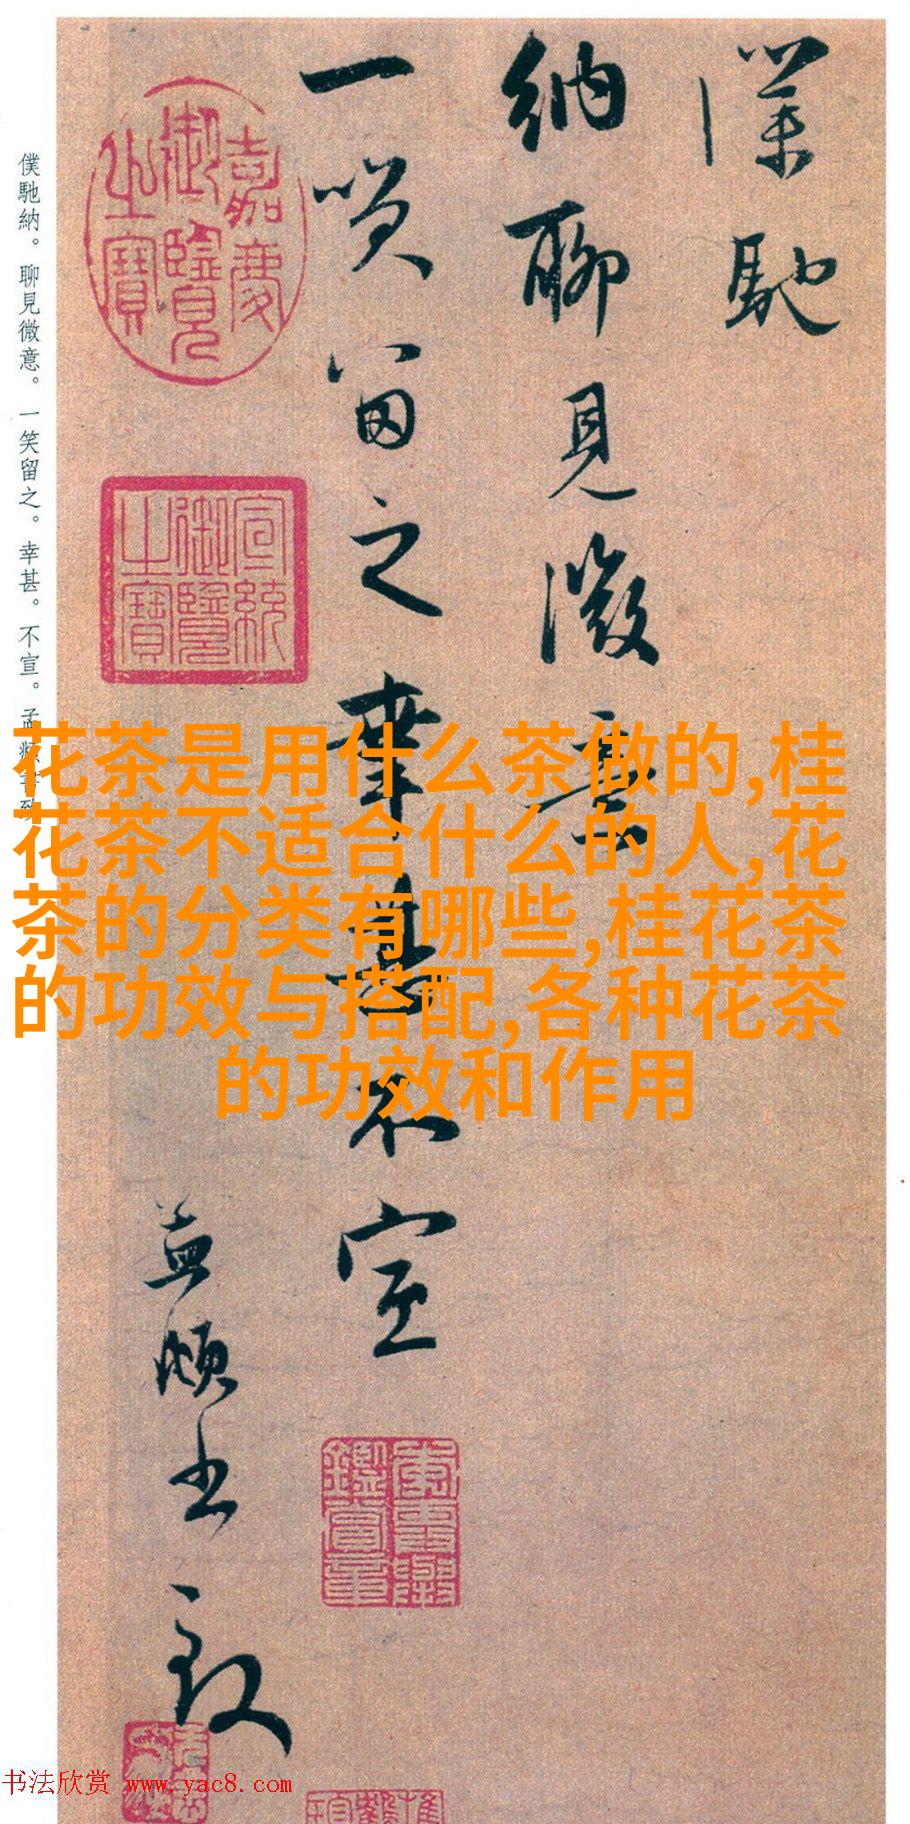 僕馳
納聊見微意
一笑留之幸甚不宣
孟頫書致
嘉慶御覽之寶
宣統御覽之寶
僕馳納。聊見微意。一笑留之。幸甚。不宣。孟頫書致
花茶是用什么茶做的,桂
花茶不适合什么的人,花
茶的分类有哪些,桂花茶
的功效与搭配,各种花茶
的功效和作用
书法欣赏 www.yac8.com